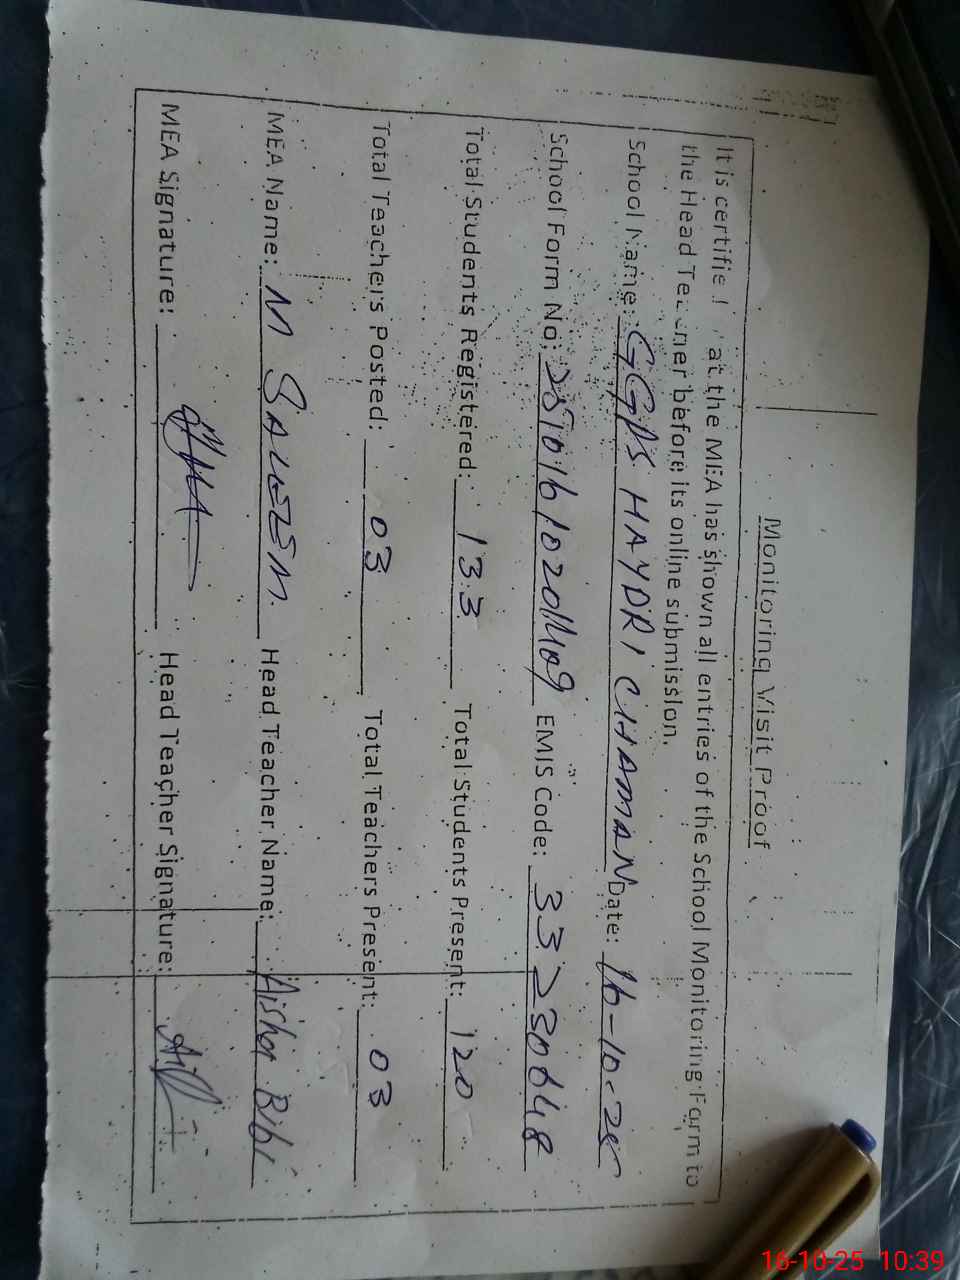 Monitoring Visit Proof
It is certified that the MEA has shown all entries of the School Monitoring Form to
the Head Teacher before its online submission.
School Name: GGPS HAYDRI CHAMAN Date: 16-10-25
School Form No: EMIS Code: 33230648
Total Students Registered: 133 Total Students Present: 120
Total Teachers Posted: 03 Total Teachers Present: 03
MEA Name: M SALEEM Head Teacher Name: Aisha Bibi
MEA Signature: Head Teacher Signature:
16-10-25 10:39